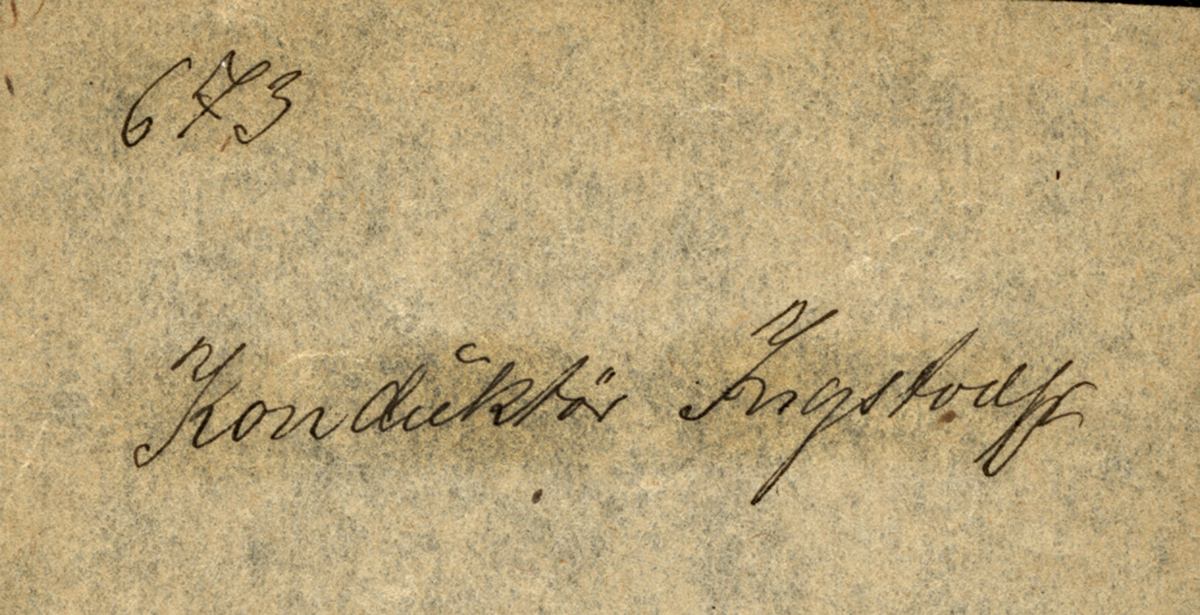 673
Konduktör Ingstodff